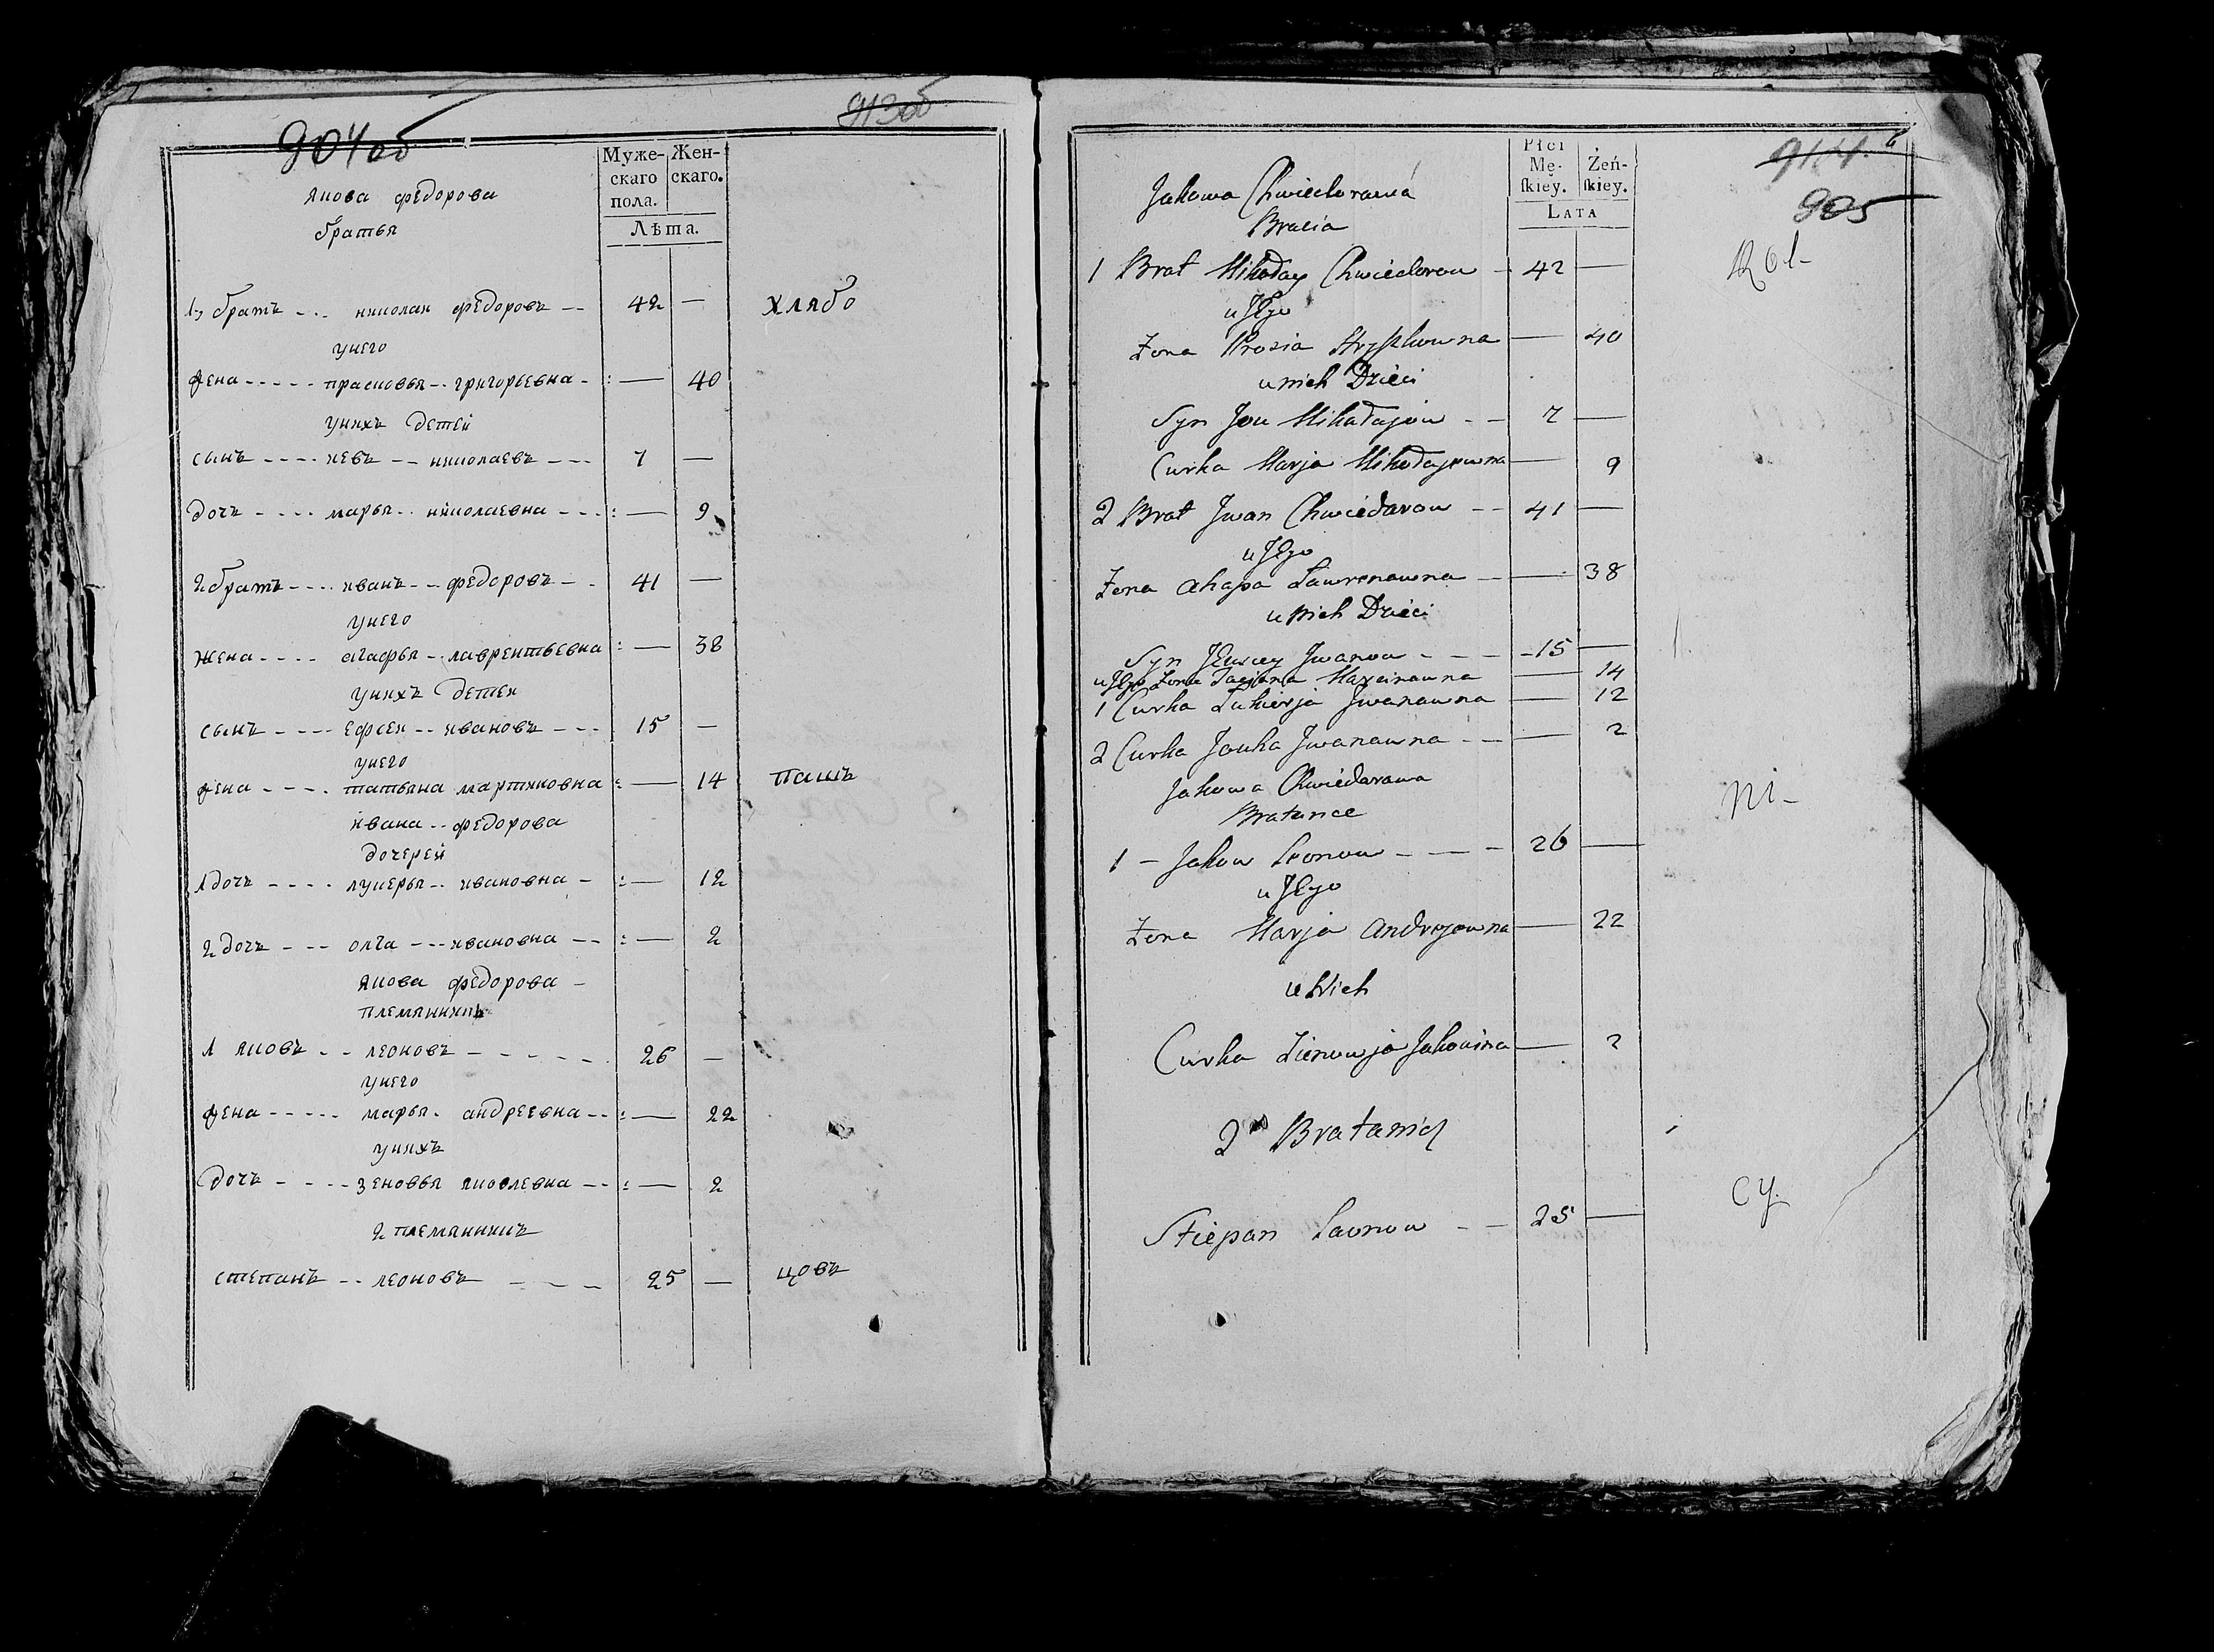 904 об
913 об
Муже-
скаго
пола.
Жен-
скаго.
Лѣта.
Якова федорова
братья
1, братъ --- николай федоровъ -- 42 —
хлѣбо
унего
жена ----- прасковья -- григорьевна - : — 40
унихъ детей
сынъ ---- иевъ -- николаевъ --- 7 —
дочь ---- марья -- николаевна --- : — 9
2 братъ ---- иванъ -- федоровъ -- 41 —
унего
жена ---- агафья -- лаврентьевна : — 38
унихъ детей
сынъ ---- ефсей -- ивановъ --- 15 —
унего
жена ---- татьяна мартиновна : — 14
пашъ
ивана -- федорова
дочерей
1 дочь ---- лукерья -- ивановна - : — 12
2 дочь --- олга --- ивановна -- : — 2
якова федорова -
племянники
1 яковъ -- леоновъ ------ 26 —
унего
жена ----- марья. андреевна -- : — 22
унихъ
дочь ---- зеновья яковлевна -- : — 2
2 племянникъ
степанъ -- леоновъ ---- 25 —
цовъ
914.
905
Płci
Mę-
ſkiey.
Żeń-
ſkiey.
LATA
Jakowa Chwiedorawa
Bracia
1 Brat Mikołay Chwiedorow - 42 —
Rol-
u Jego
Żona Prosia Hryszkowna — 40
u nich Dzieci
Syn Jou Mikołajow -- 7 —
Curka Marja Mikołajowna — 9
2 Brat Jwan Chwiedarow -- 41 —
u Jego
Żona Ahapa Ławrenawna -- — 38
u Nich Dzieci
Syn Jewsiey Jwanow ---- 15 —
u Jego Żona Taciana Marcinawna — 14
1 Curka Łukierja Jwanawna — 12
2 Curka Jouka Jwanawna -- — 2
Jakowa Chwiedarawa
Bratance
ni-
1 - Jakow Leonow ---- 26 —
u Jego
Żona Marja Andrejewna — 22
u Nich
Curka Zienowja Jakowina — 2
2 Bratanicz
cy.
Stiepan Laonow -- 25 —